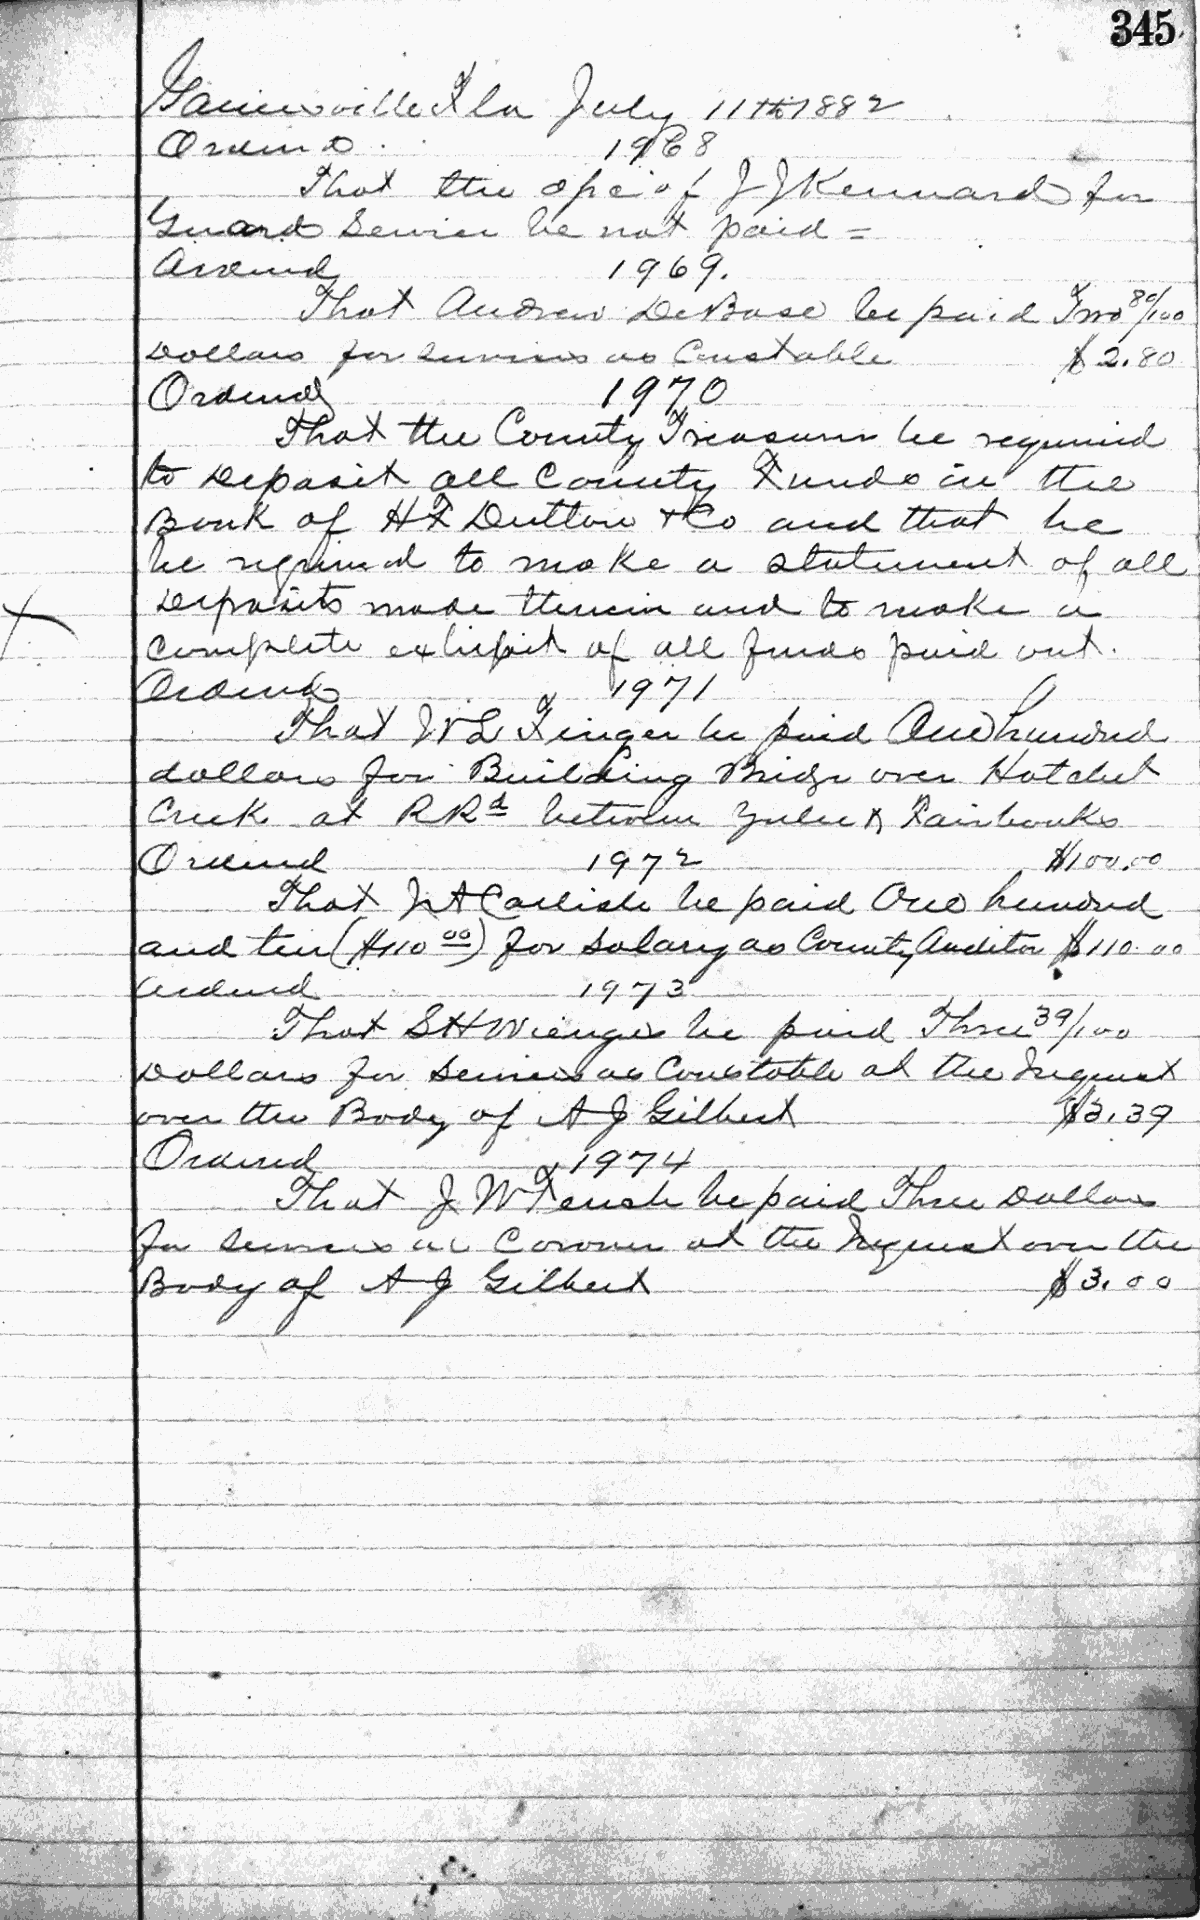 345
Gainesville Fla July 11th 1882
Ordered 1968
That the of J J Kennard for
Guard Service be not paid =
Ordered 1969.
That Andrew DeBose be paid Two 80/100
Dollars for services as Constable $2.80
Ordered 1970
That the County Treasurer be required
to Deposit all County Funds in the
Bank of H F Dutton & Co and that he
be required to make a statement of all
Deposits made therein and to make a
complete exhibit of all funds paid out.
Ordered 1971
That W L Finger be paid One hundred
dollars for Building Bridge over Hatchet
Creek at R Rd between Yulee & Fairbanks
Ordered 1972 $100.00
That Carlisle be paid One hundred
and ten ($110 00) for Salary as County Auditor $110.00
Ordered 1973
That S H Wienges be paid Three 39/100
Dollars for Services as Constable at the Inquest
over the Body of A J Gilbert $3.39
Ordered 1974
That J W be paid Three Dollars
for services as Coroner at the Inquest over the
Body of A J Gilbert $3.00